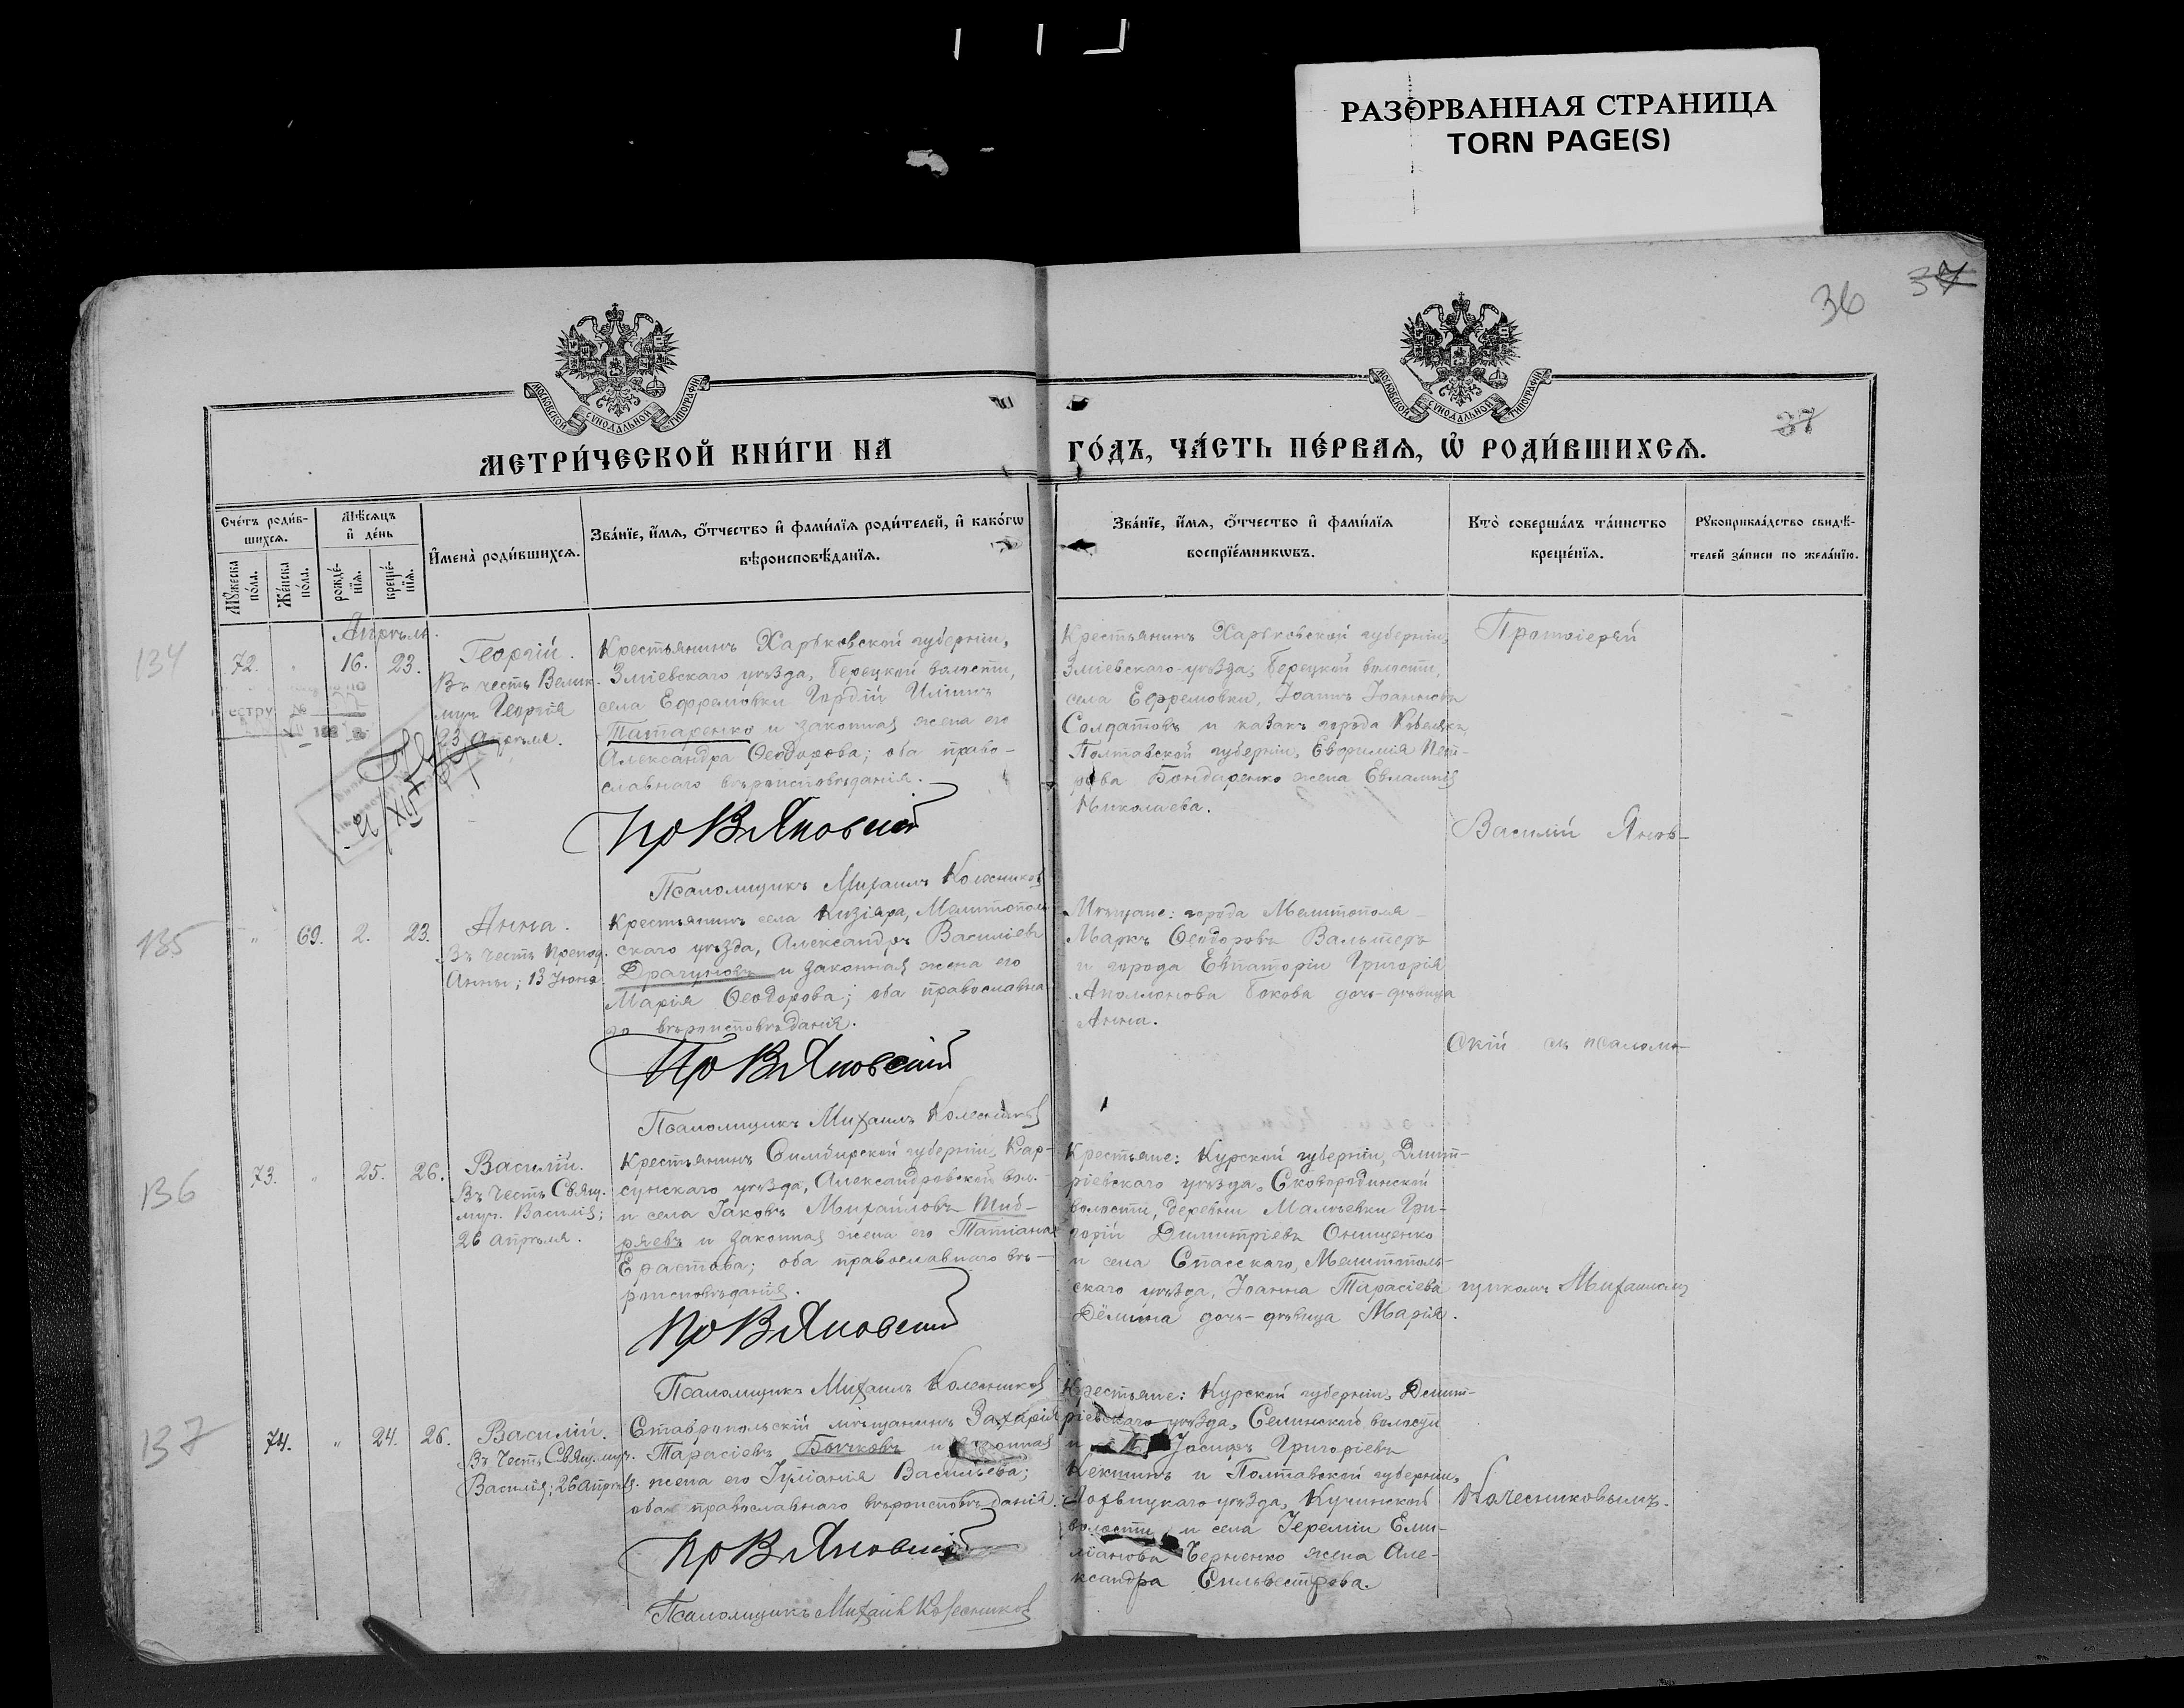 РАЗОРВАННАЯ СТРАНИЦА
TORN PAGE(S)
36
37
МОСКОВСКОЙ СѴНОДАЛЬНОЙ ТИПОГРАФІИ
МОСКОВСКОЙ СѴНОДАЛЬНОЙ ТИПОГРАФІИ
37
МЕТРИ́ЧЕСКОЙ КНИ́ГИ НА
ГО́ДЪ, ЧА́СТЬ ПЕ́РВАЯ, Ѽ РОДИ́ВШИХСЯ.
Сче́тъ роди́в-
шихся.
Мꙋ́жеска по́ла.
Же́нска по́ла.
Мѣ́сяцъ
и҆ де́нь
рожде́-
нїя.
креще́-
нїя.
И҆мена̀ роди́вшихся.
Зва́нїе, и҆́мя, ѻ҆́тчество и҆ фами́лїя роди́телей, и҆ како́гѡ
вѣроисповѣ́данїя.
Зва́нїе, и҆́мя, ѻ҆́тчество и҆ фами́лїя
воспрїе́мникѡвъ.
Кто̀ соверша́лъ та́инство
креще́нїя.
Рꙋкоприкла́дство свидѣ́-
телей за́писи по жела́нїю.
Апрѣль.
134
72.
"
16.
23.
Георгій.
Въ честь Велик.
муч. Георгія
23 Апрѣля.
Крестьянинъ Харьковской губерніи,
Зміевскаго уѣзда, Берецкой волости,
села Ефремовки Гордій Иліинъ
Татаренко и законная жена его
Александра Ѳеодорова; оба право-
славнаго вѣроисповѣданія.
Пр В Яновскій
Псаломщикъ Михаилъ Колесниковъ
Крестьянинъ Харьковской губерніи,
Зміевскаго уѣзда, Берецкой волости,
села Ефремовки, Іоаннъ Іоанновъ
Солдатовъ и казакъ города Кобеляки,
Полтавской губерніи, Евфимія Пет-
рова Бондаренко жена Евлампія
Николаева.
Протоіерей
Василій Янов-
скій съ псалом-
щикомъ Михаиломъ
Колесниковымъ.
135
"
69.
2.
23.
Анна.
Въ честь препод.
Анны; 13 Іюня.
Крестьянинъ села Кизіяра, Мелитополь-
скаго уѣзда, Александръ Василіевъ
Драгуновъ и законная жена его
Марія Ѳеодорова; оба православна-
го вѣроисповѣданія.
Пр В Яновскій
Псаломщикъ Михаилъ Колесниковъ
Мѣщане: города Мелитополя
Маркъ Ѳеодоровъ Вальтеръ
и города Евпаторіи Григорія
Аполлонова Бокова дочь-дѣвица
Анна.
136
73.
"
25.
26.
Василій.
Въ честь Свящ.
муч. Василія;
26 Апрѣля.
Крестьянинъ Симбирской губерніи, Кар-
сунскаго уѣзда, Александровской вол.
и села Іаковъ Михайловъ Шиб-
ряевъ и законная жена его Татіана
Ерастова; оба православнаго вѣ-
роисповѣданія.
Пр В Яновскій
Псаломщикъ Михаилъ Колесниковъ
Крестьяне: Курской губерніи, Дмит-
ріевскаго уѣзда, Сковородинской
волости, деревни Малѣевки Гри-
горій Димитріевъ Онищенко
и села Спасскаго, Мелитополь-
скаго уѣзда, Іоанна Тарасіева
Дёмина дочь-дѣвица Марія.
137
74.
"
24.
26.
Василій.
Въ честь Свящ. муч.
Василія; 26 Апрѣля.
Ставропольскій мѣщанинъ Захарія
Тарасіевъ Бочковъ и законная
жена его Іуліанія Васильева;
оба православнаго вѣроисповѣданія.
Пр В Яновскій
Псаломщикъ Михаилъ Колесниковъ
Крестьяне: Курской губерніи, Дмит-
ріевскаго уѣзда, Селинской волости
и Іосифъ Григоріевъ
Кекшинъ и Полтавской губерніи,
Лохвицкаго уѣзда, Кучинской
волости и села Іереміи Еми-
ліанова Черненко жена Але-
ксандра Сильвестрова.